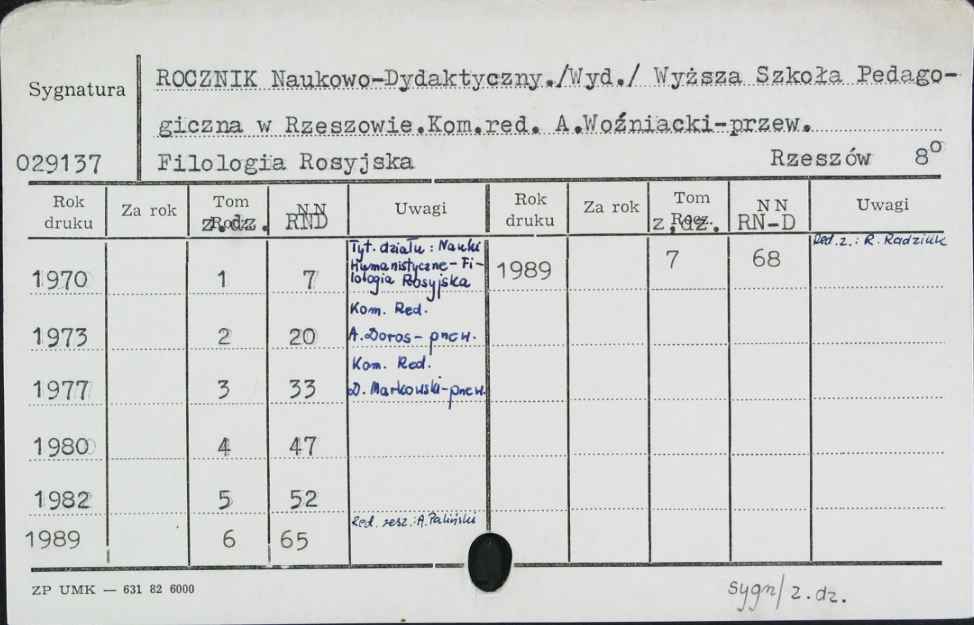 Sygnatura
ROCZNIK Naukowo-Dydaktyczny./Wyd./ Wyższa Szkoła Pedago-
giczna w Rzeszowie.Kom.red. A.Woźniacki-przew.
029137
Filologia Rosyjska
Rzeszów 8°
Rok druku Za rok Tom Rocz. z.dz. NN RND Uwagi Rok druku Za rok Tom Rocz. z.dz. NN RN-D Uwagi
1970 1 7 Tyt. działu: Nauki
Humanistyczne-Fi-
lologia Rosyjska
1989 7 68 Red.z.: R. Radziuk
1973 2 20 Kom. Red.
A.Doros-przew.
1977 3 33 Kom. Red.
D. Markowski-przew.
1980 4 47
1982 5 52
1989 6 65 Red. zesz.: A. Paliński
ZP UMK — 631 82 6000
sygn/z.dz.